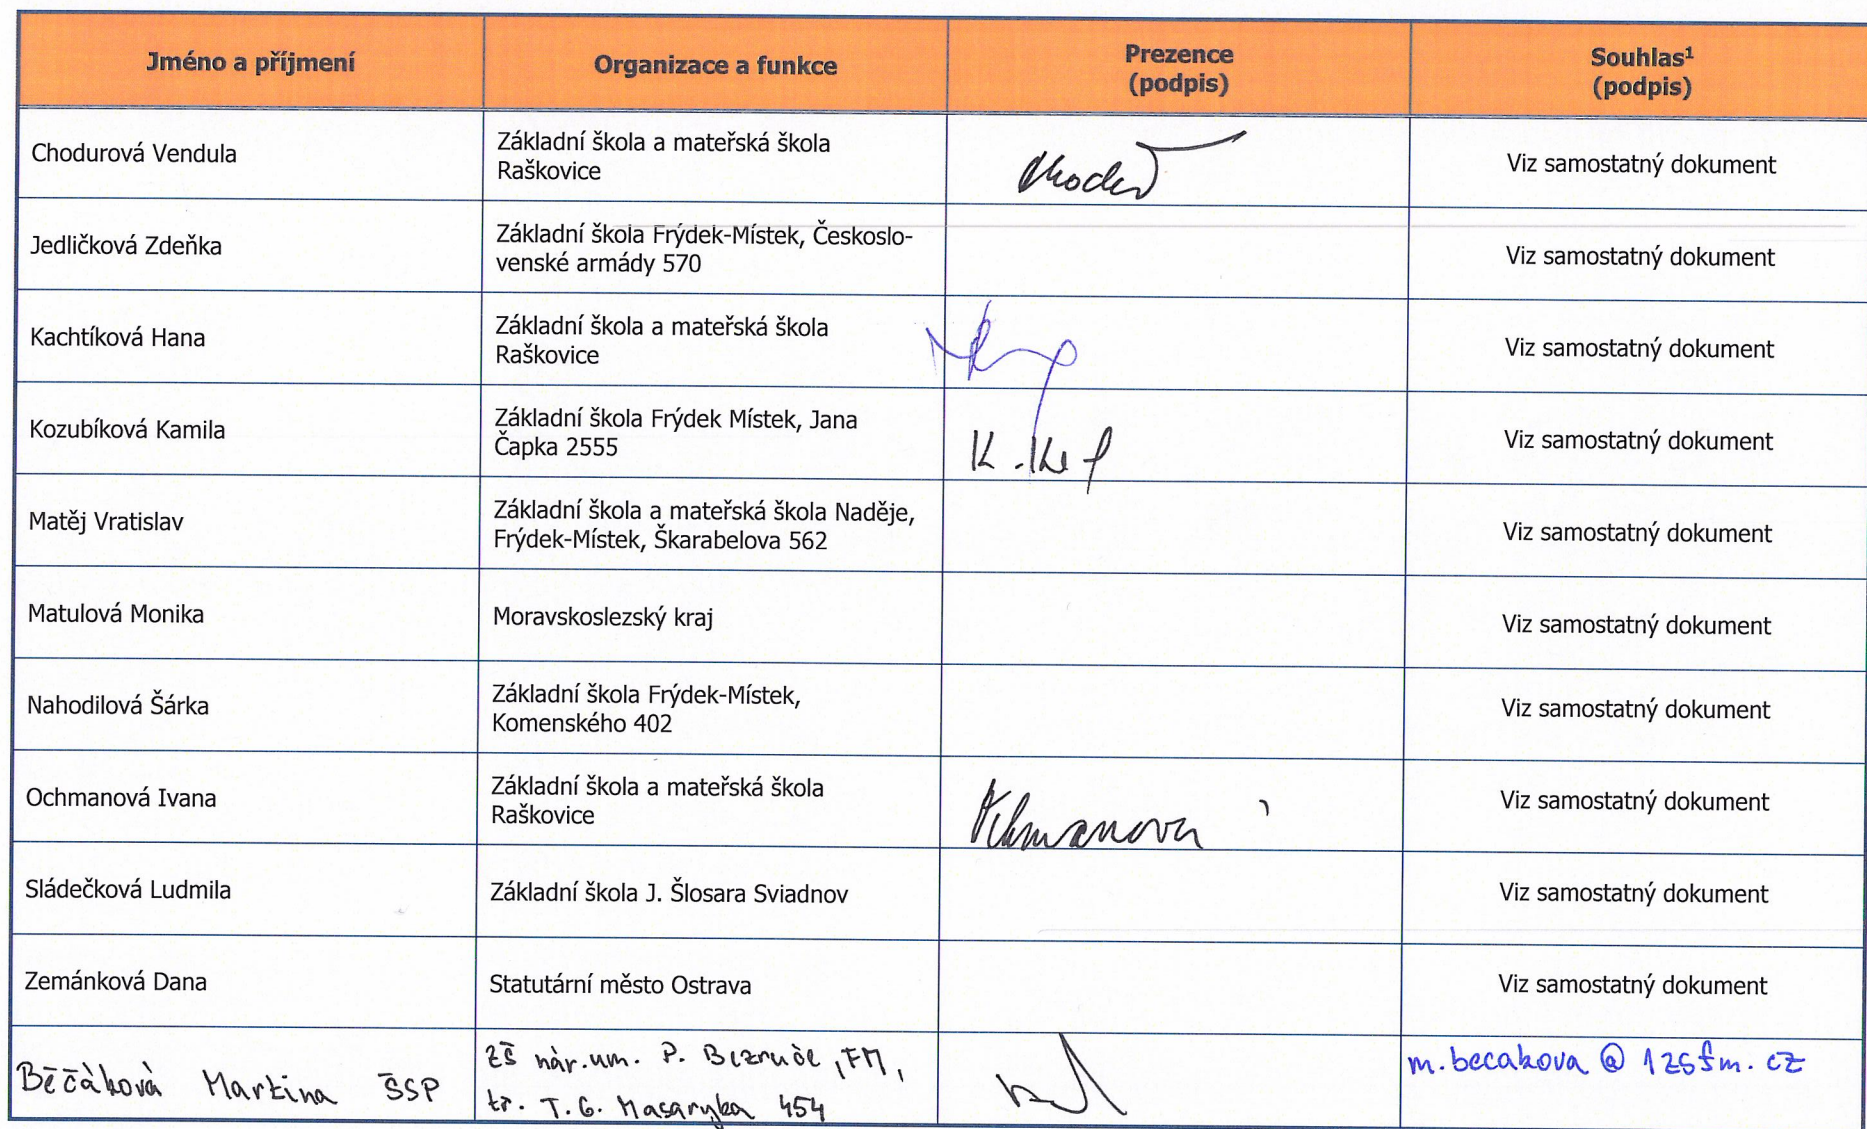 Jméno a příjmení
Organizace a funkce
Prezence
(podpis)
Souhlas¹
(podpis)
Chodurová Vendula
Základní škola a mateřská škola
Raškovice
Viz samostatný dokument
Jedličková Zdeňka
Základní škola Frýdek-Místek, Českoslo-
venské armády 570
Viz samostatný dokument
Kachtíková Hana
Základní škola a mateřská škola
Raškovice
Viz samostatný dokument
Kozubíková Kamila
Základní škola Frýdek Místek, Jana
Čapka 2555
Viz samostatný dokument
Matěj Vratislav
Základní škola a mateřská škola Naděje,
Frýdek-Místek, Škarabelova 562
Viz samostatný dokument
Matulová Monika
Moravskoslezský kraj
Viz samostatný dokument
Nahodilová Šárka
Základní škola Frýdek-Místek,
Komenského 402
Viz samostatný dokument
Ochmanová Ivana
Základní škola a mateřská škola
Raškovice
Ochmanová
Viz samostatný dokument
Sládečková Ludmila
Základní škola J. Šlosara Sviadnov
Viz samostatný dokument
Zemánková Dana
Statutární město Ostrava
Viz samostatný dokument
Béčáková Martina ŠSP
ZŠ nár.um. P. Bezruče, FM,
tř. T.G. Masaryka 454
m.becakova@1zsfm.cz